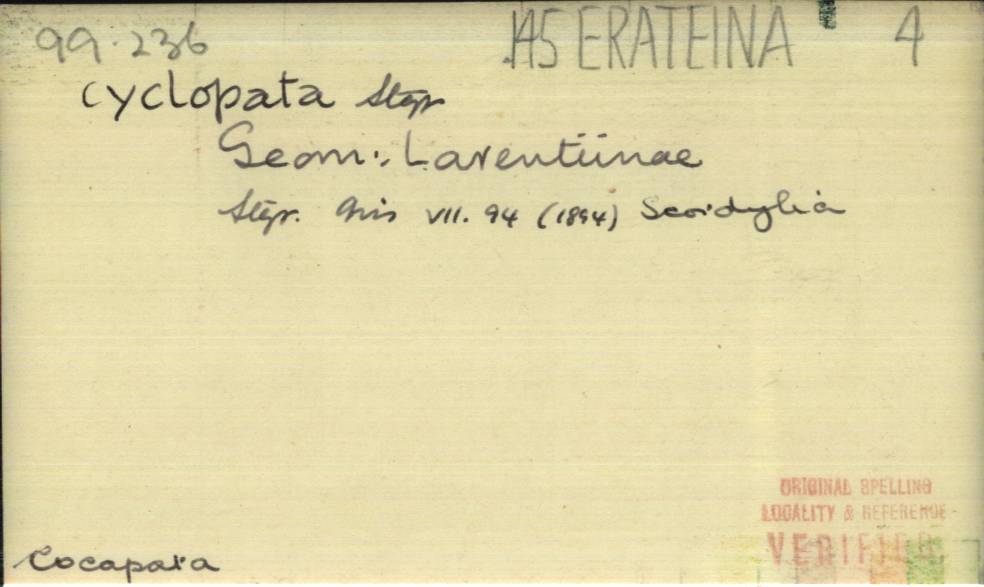 99.236 .145 ERATEINA 4
cyclopata Stgr
Geom:. Larentiinae
Stgr. Iris VII. 94 (1894) Scordylia
ORIGINAL SPELLING
LOCALITY & REFERENCE
VERIFIED
Cocapata